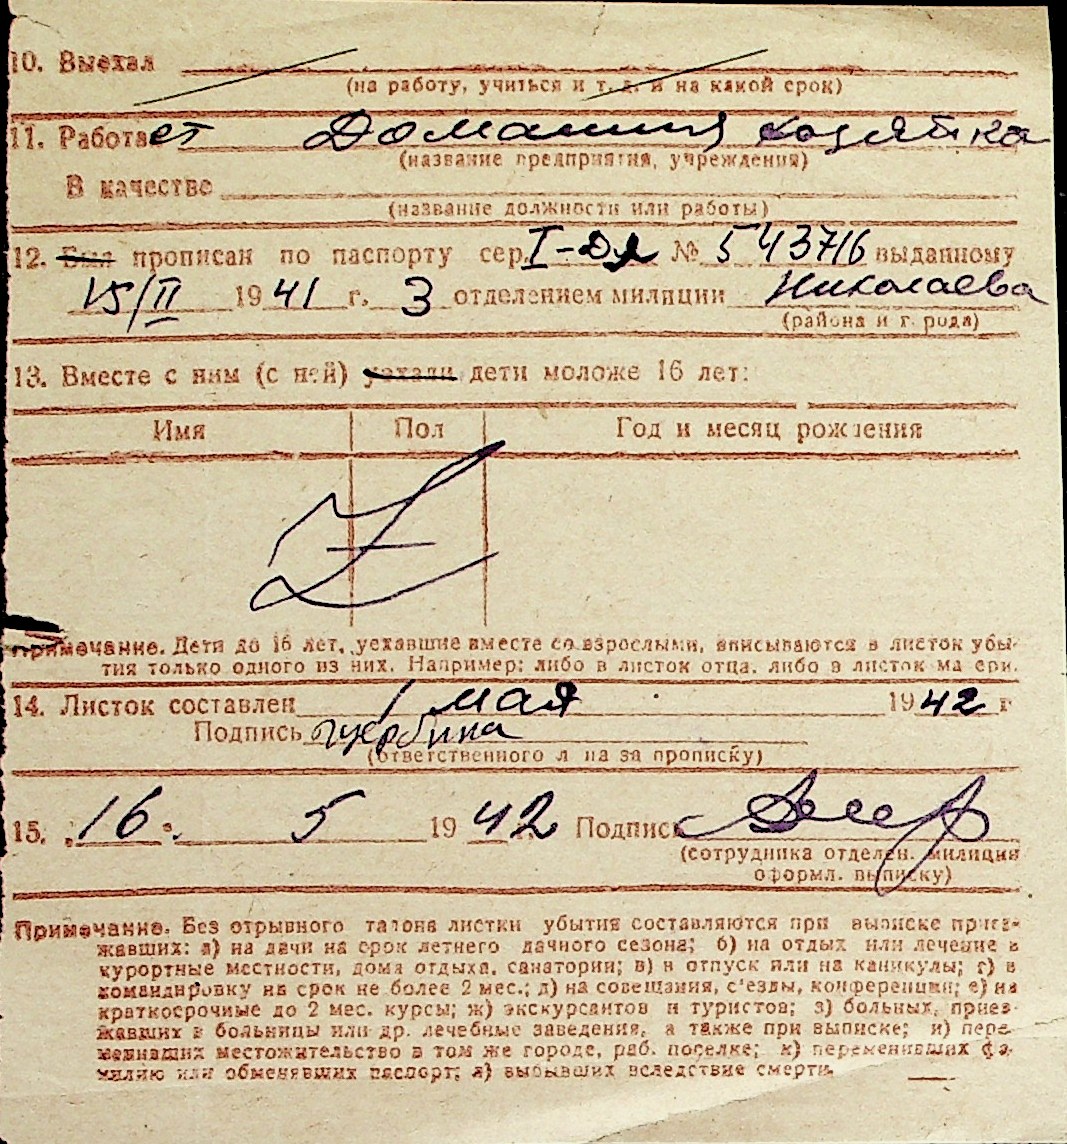 10. Выехал
(на работу, учиться и т. д. и на какой срок)
11. Работает Домашния хозяйка
(название предприятия, учреждения)
В качестве
(название должности или работы)
12. Был прописан по паспорту сер. I-Дя № 543716 выданному
15/II 1941 г. 3 отделением милиции Николаева
(района и г. рода)
13. Вместе с ним (с ней) уехали дети моложе 16 лет:
Имя Пол Год и месяц рождения
Примечание. Дети до 16 лет, уехавшие вместе со взрослыми, вписываются в листок убы-
тия только одного из них. Например: либо в листок отца, либо в листок ма ери.
14. Листок составлен 1 мая 1942 г
Подпись Щербина
(ответственного л на за прописку)
15. „16“. 5 1942 Подпись
(сотрудника отделен. милиции
оформл. выписку)
Примечание. Без отрывного талона листки убытия составляются при выписке приез-
жавших: а) на дачи на срок летнего дачного сезона; б) на отдых или лечение в
курортные местности, дома отдыха, санатории; в) в отпуск или на каникулы; г) в
командировку на срок не более 2 мес.; д) на совещания, с'езды, конференции; е) на
краткосрочные до 2 мес. курсы; ж) экскурсантов и туристов; з) больных, приез-
жавших в больницы или др. лечебные заведения, а также при выписке; и) пере-
менивших местожительство в том же городе, раб. поселке; к) переменивших фа-
милию или обменявших паспорт; л) выбывших вследствие смерти.